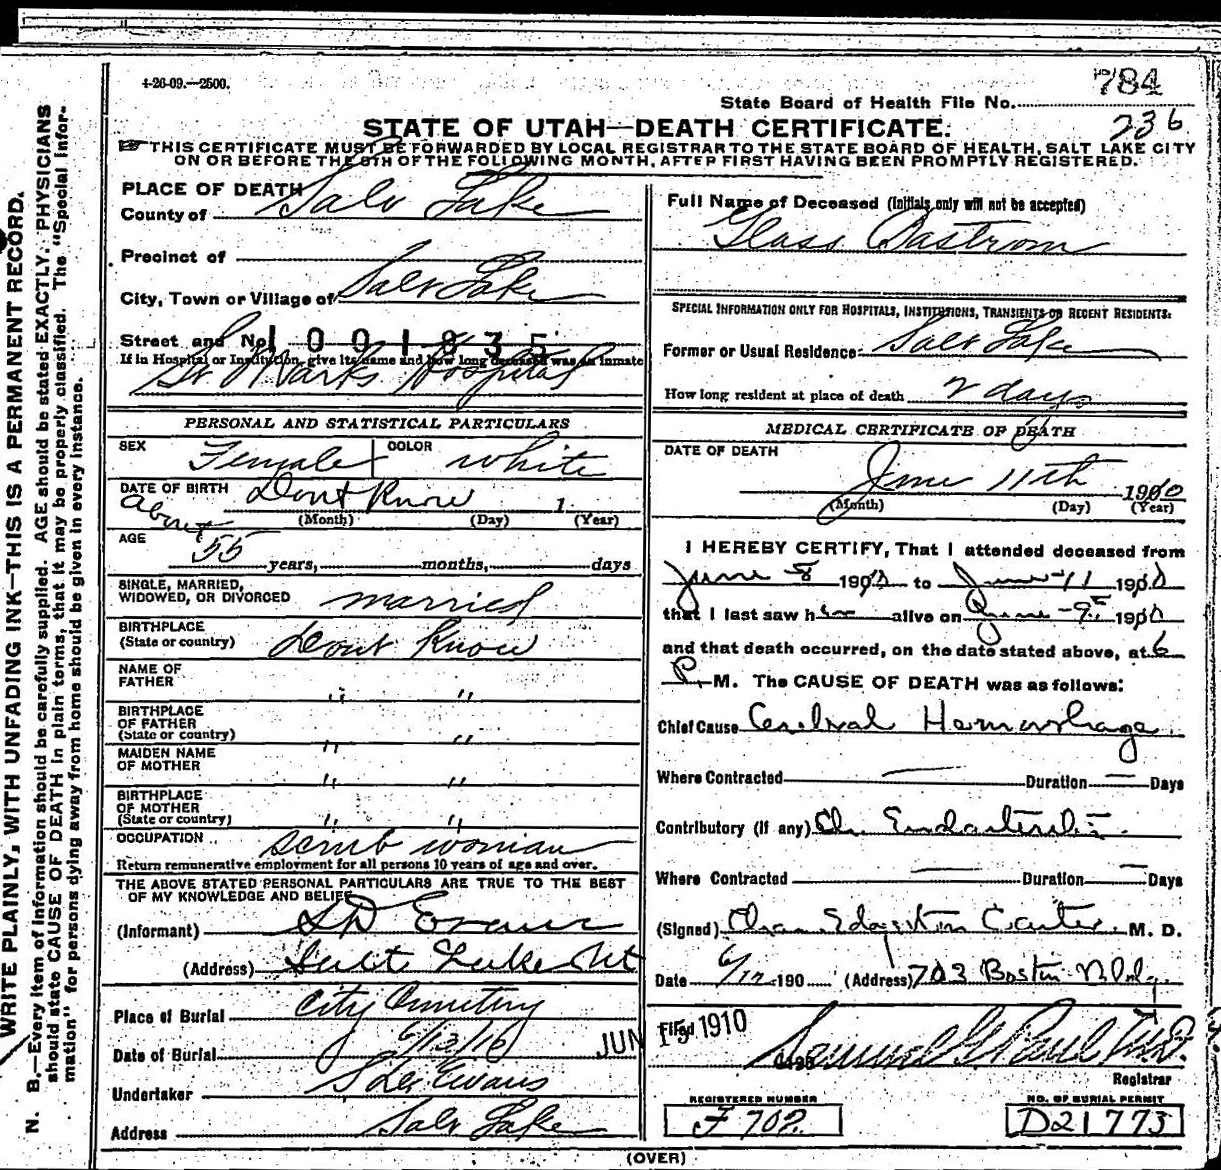 4-26-09.—2500.
784
State Board of Health File No.
236
STATE OF UTAH—DEATH CERTIFICATE.
THIS CERTIFICATE MUST BE FORWARDED BY LOCAL REGISTRAR TO THE STATE BOARD OF HEALTH, SALT LAKE CITY
ON OR BEFORE THE 5TH OF THE FOLLOWING MONTH, AFTER FIRST HAVING BEEN PROMPTLY REGISTERED.
WRITE PLAINLY, WITH UNFADING INK—THIS IS A PERMANENT RECORD.
N. B.—Every item of information should be carefully supplied. AGE should be stated EXACTLY. PHYSICIANS
should state CAUSE OF DEATH in plain terms, that it may be properly classified. The "Special Infor-
mation" for persons dying away from home should be given in every instance.
PLACE OF DEATH
County of Salt Lake
Precinct of
City, Town or Village of Salt Lake
Street and No. 1001835
If in Hospital or Institution, give its name and how long deceased was an inmate
St Marks Hospital
PERSONAL AND STATISTICAL PARTICULARS
SEX Female COLOR white
DATE OF BIRTH Dont Know 1
(Month) (Day) (Year)
AGE about 55 years, months, days
SINGLE, MARRIED,
WIDOWED, OR DIVORCED married
BIRTHPLACE
(State or country) Dont Know
NAME OF
FATHER " "
BIRTHPLACE
OF FATHER
(State or country) " "
MAIDEN NAME
OF MOTHER " "
BIRTHPLACE
OF MOTHER
(State or country) " "
OCCUPATION scrub woman
Return remunerative employment for all persons 10 years of age and over.
THE ABOVE STATED PERSONAL PARTICULARS ARE TRUE TO THE BEST
OF MY KNOWLEDGE AND BELIEF
(Informant) Evans
(Address) Salt Lake Ut
Place of Burial City Cemetery
Date of Burial 6/13/10
Undertaker Evans
Address Salt Lake
Full Name of Deceased (Initials only will not be accepted)
Glass Oastrom
SPECIAL INFORMATION ONLY FOR HOSPITALS, INSTITUTIONS, TRANSIENTS OR RECENT RESIDENTS.
Former or Usual Residence Salt Lake
How long resident at place of death 2 days
MEDICAL CERTIFICATE OF DEATH
DATE OF DEATH
June 11th 1910
(Month) (Day) (Year)
I HEREBY CERTIFY, That I attended deceased from
June 8 1910 to June 11 1910
that I last saw her alive on June 9th 1910
and that death occurred, on the date stated above, at 6
P. M. The CAUSE OF DEATH was as follows:
Chief Cause Cerebral Hemorrhage
Where Contracted — Duration — Days
Contributory (if any) Ch. Endarteritis
Where Contracted — Duration — Days
(Signed) Chas Edgerton Carter M. D.
Date 6/12 190 (Address) 703 Boston Bldg.
Filed JUN 15 1910
Samuel G. Paul M.D.
Registrar
REGISTERED NUMBER
F 702
NO. OF BURIAL PERMIT
D21773
(OVER)